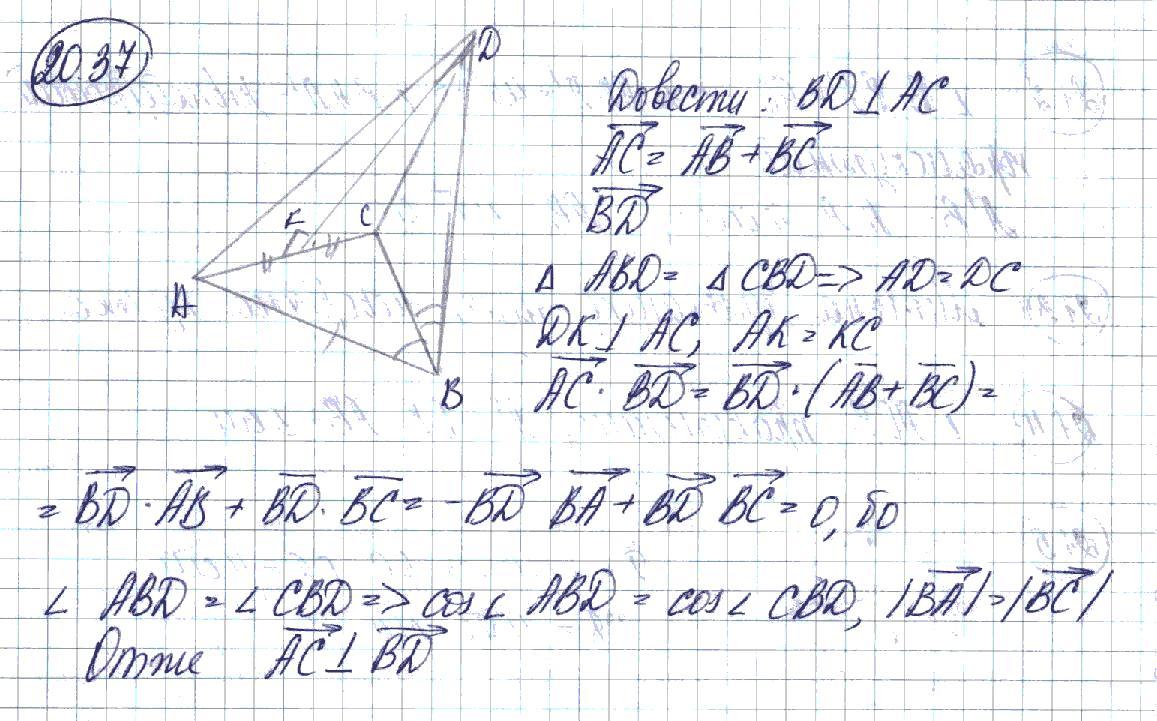 2037
D
K
C
A
B
Довести: BD ⊥ AC
AC = AB + BC
BD
Δ ABD = Δ CBD => AD = DC
DK ⊥ AC, AK = KC
AC · BD = BD · (AB + BC) =
= BD · AB + BD · BC = - BD BA + BD BC = 0, бо
∠ ABD = ∠ CBD => cos∠ ABD = cos∠ CBD, |BA| = |BC|
Отже AC ⊥ BD